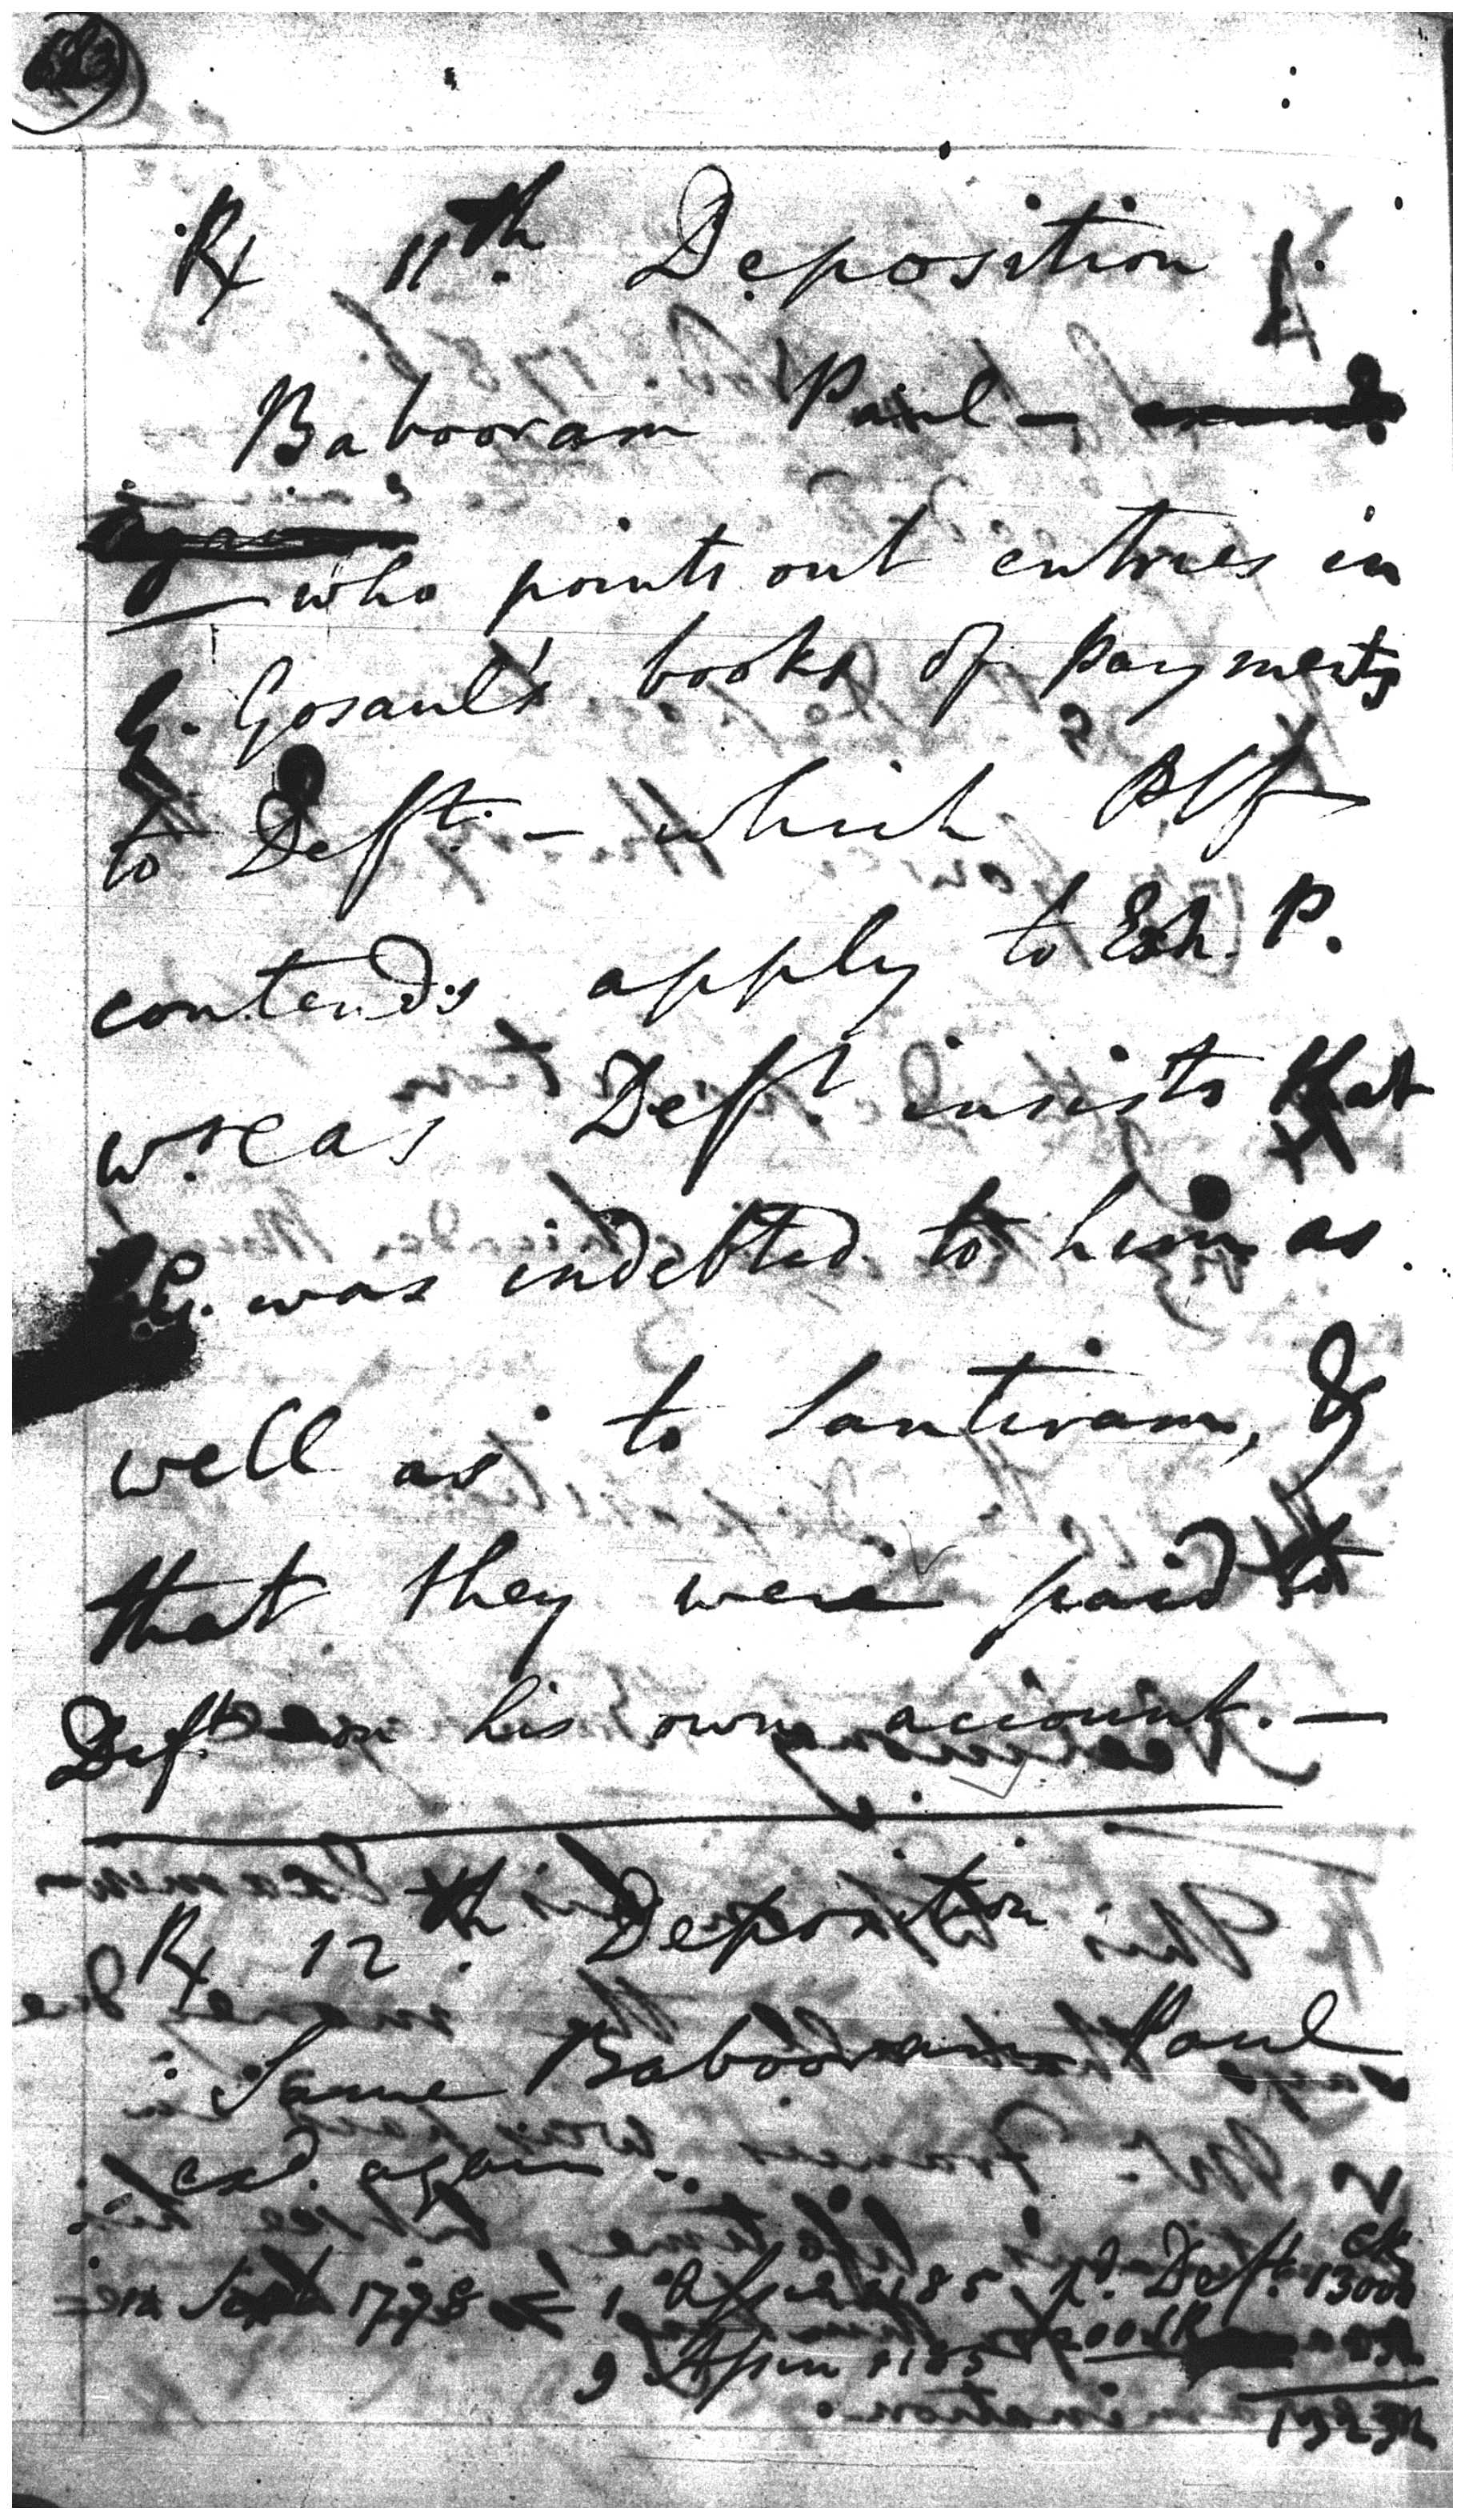 Rx 11th. Deposition
Babooram Paul —
— who points out entries in
G. Gosaul's books of payments
to Deft. — which Plf
contends apply to Exh. P.
wreas Deft insists that
G. was indebted to him as
well as to Santiram, &
that they were paid to
Deft on his own account. —
Rx 12th. Deposition
Same Babooram Paul
exd. again —
Sept 1778 1 Assin 1185 pd. Deft. 13000
9 Assin 1185